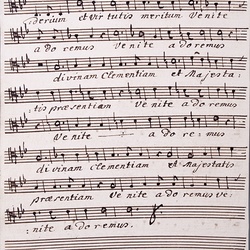 :derium et virtutis meritum Venite
adoremus Venite adoremus
divinam Clementiam et Majesta:
:tis præsentiam Venite Venite
Venite adore:mus
divinam Clementiam et Majestatis
præsentiam Venite adoremus ve:
:nite adoremus.